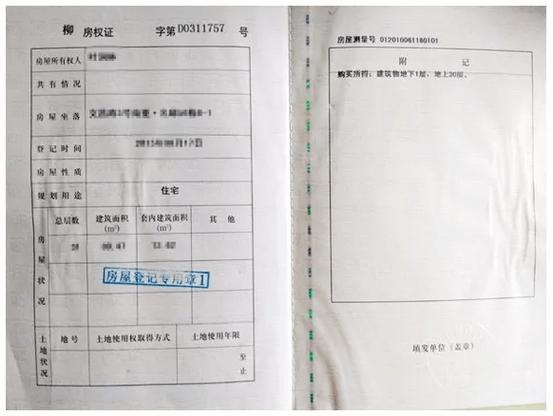 柳 房权证 字第 D0311757 号
房屋所有权人
共有情况
房屋坐落
登记时间
房屋性质
规划用途 住宅
房屋状况
总层数 建筑面积(m²) 套内建筑面积(m²) 其他
房屋登记专用章1
土地状况
地号 土地使用权取得方式 土地使用年限
至
止
房屋测量号 012010061180101
附记
购买所得；建筑物地下1层，地上30层。
填发单位（盖章）